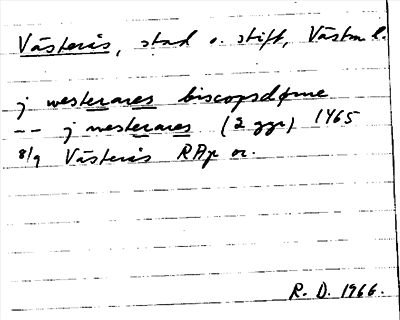 Västerås, stad o. stift, Västm l.
j westerares biscopsdøme
-- j westerares (2 ggr) 1465
8/9 Västerås RAp or.
R. D. 1966.